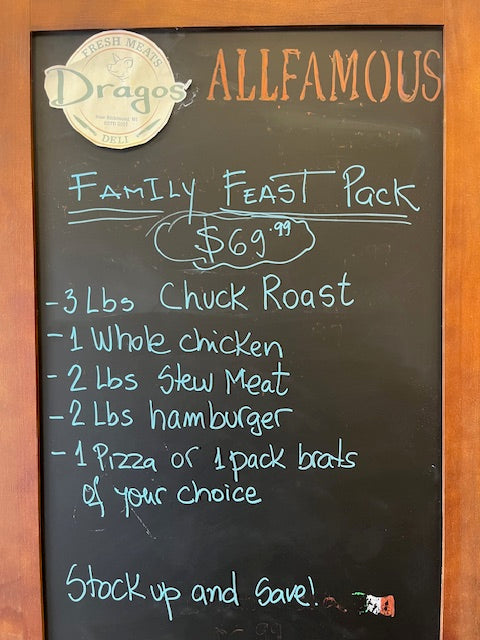 FRESH MEATS
Dragos
New Richmond, WI
DELI
ALLFAMOUS
FAMILY FEAST Pack
$69.99
-3 Lbs Chuck Roast
-1 Whole chicken
-2 Lbs Stew Meat
-2 Lbs hamburger
-1 Pizza or 1 pack brats
of your choice
Stock up and Save!